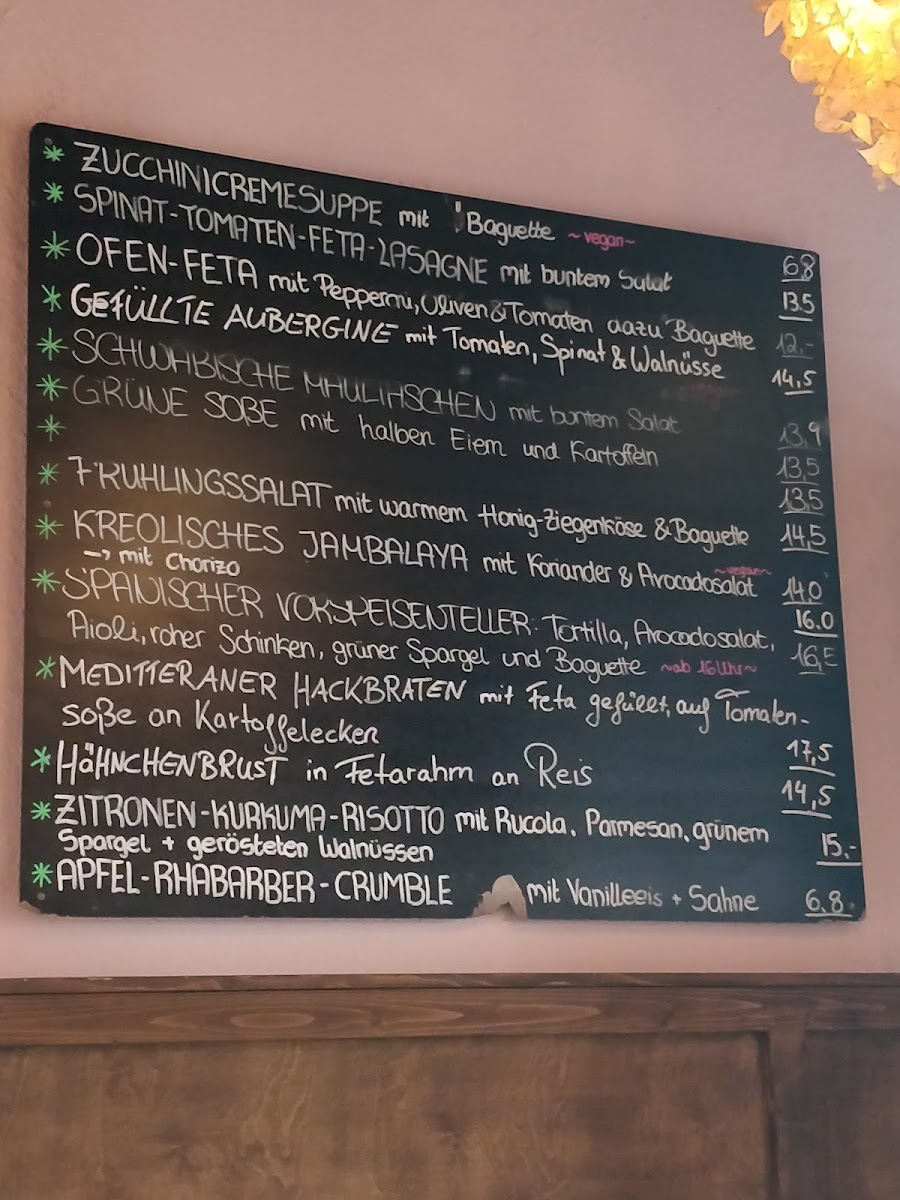 * ZUCCHINICREMESUPPE mit Baguette ~vegan~ 6,8
* SPINAT-TOMATEN-FETA-LASAGNE mit buntem Salat 13.5
* OFEN-FETA mit Pepperoni, Oliven & Tomaten dazu Baguette 12,-
* GEFÜLLTE AUBERGINE mit Tomaten, Spinat & Walnüsse 14,5
* SCHWÄBISCHE MAULTASCHEN mit buntem Salat 13,9
* GRÜNE SOßE mit halben Eiern und Kartoffeln 13,5
* 13,5
* FRÜHLINGSSALAT mit warmem Honig-Ziegenkäse & Baguette 14,5
* KREOLISCHES JAMBALAYA mit Koriander & Avocadosalat ~vegan~ 14.0
→ mit Chorizo 16.0
* SPANISCHER VORSPEISENTELLER: Tortilla, Avocadosalat, 16,5
Aioli, roher Schinken, grüner Spargel und Baguette ~ab 16 Uhr~
* MEDITTERANER HACKBRATEN mit Feta gefüllt, auf Tomaten-
soße an Kartoffelecken 17,5
* HÄHNCHENBRUST in Fetarahm an Reis 14,5
* ZITRONEN-KURKUMA-RISOTTO mit Rucola, Parmesan, grünem 15.-
Spargel + gerösteten Walnüssen
* APFEL-RHABARBER-CRUMBLE mit Vanilleeis + Sahne 6,8